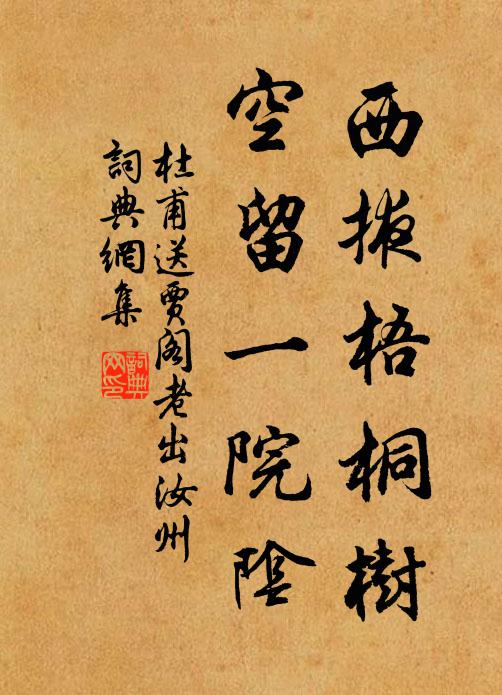 西掖梧桐樹
空留一院陰
杜甫送賈閣老出汝州
詞典網集
詞典
网印